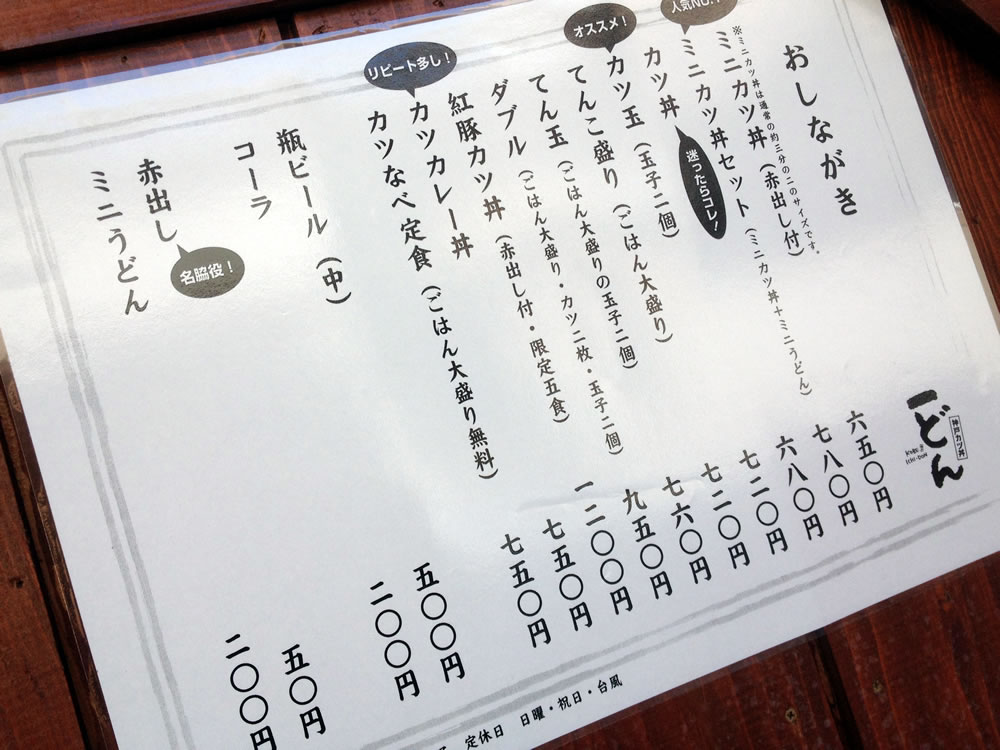 おしながき
※ミニカツ丼は通常の約三分の二のサイズです。
ミニカツ丼（赤出し付） 六五〇円
人気NO.
ミニカツ丼セット（ミニカツ丼＋ミニうどん） 七八〇円
迷ったらコレ！
カツ丼 六八〇円
オススメ！
カツ玉（玉子二個） 七二〇円
てんこ盛り（ごはん大盛り） 七二〇円
てん玉（ごはん大盛りの玉子二個） 七六〇円
ダブル（ごはん大盛り・カツ二枚・玉子二個） 九五〇円
紅豚カツ丼（赤出し付・限定五食） 一二〇〇円
リピート多し！
カツカレー丼 七五〇円
カツなべ定食（ごはん大盛り無料） 七五〇円
瓶ビール（中） 五〇〇円
コーラ 二〇〇円
赤出し 五〇円
名脇役！
ミニうどん 二〇〇円
神戸カツ丼
一どん
定休日 日曜・祝日・台風